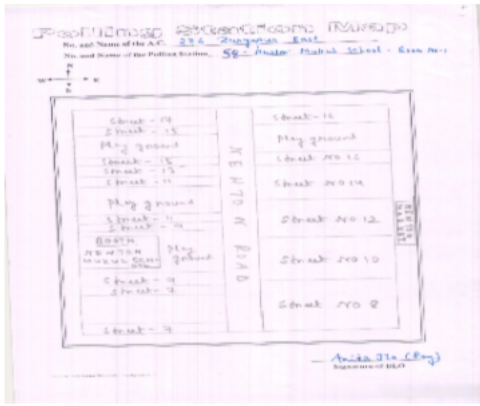 Polling Station Map
No. and Name of the A.C. 276 Durgapur East
No. and Name of the Polling Station, 58 - Mukul School - Room No-1
N
W E
S
Street - 17
Street - 15
Play ground
Street - 15
Street - 13
Street - 11
Play ground
Street - 11
Street - 9
BOOTH
NEWTON
MUKUL SCHOOL
Play
ground
Street - 9
Street - 7
Street - 7
NEWTON ROAD
Street - 16
Play ground
Street NO 16
Street NO 14
Street NO 12
Street NO 10
Street NO 8
NEWTON
MARKET
Anita Jha (Roy)
Signature of BLO